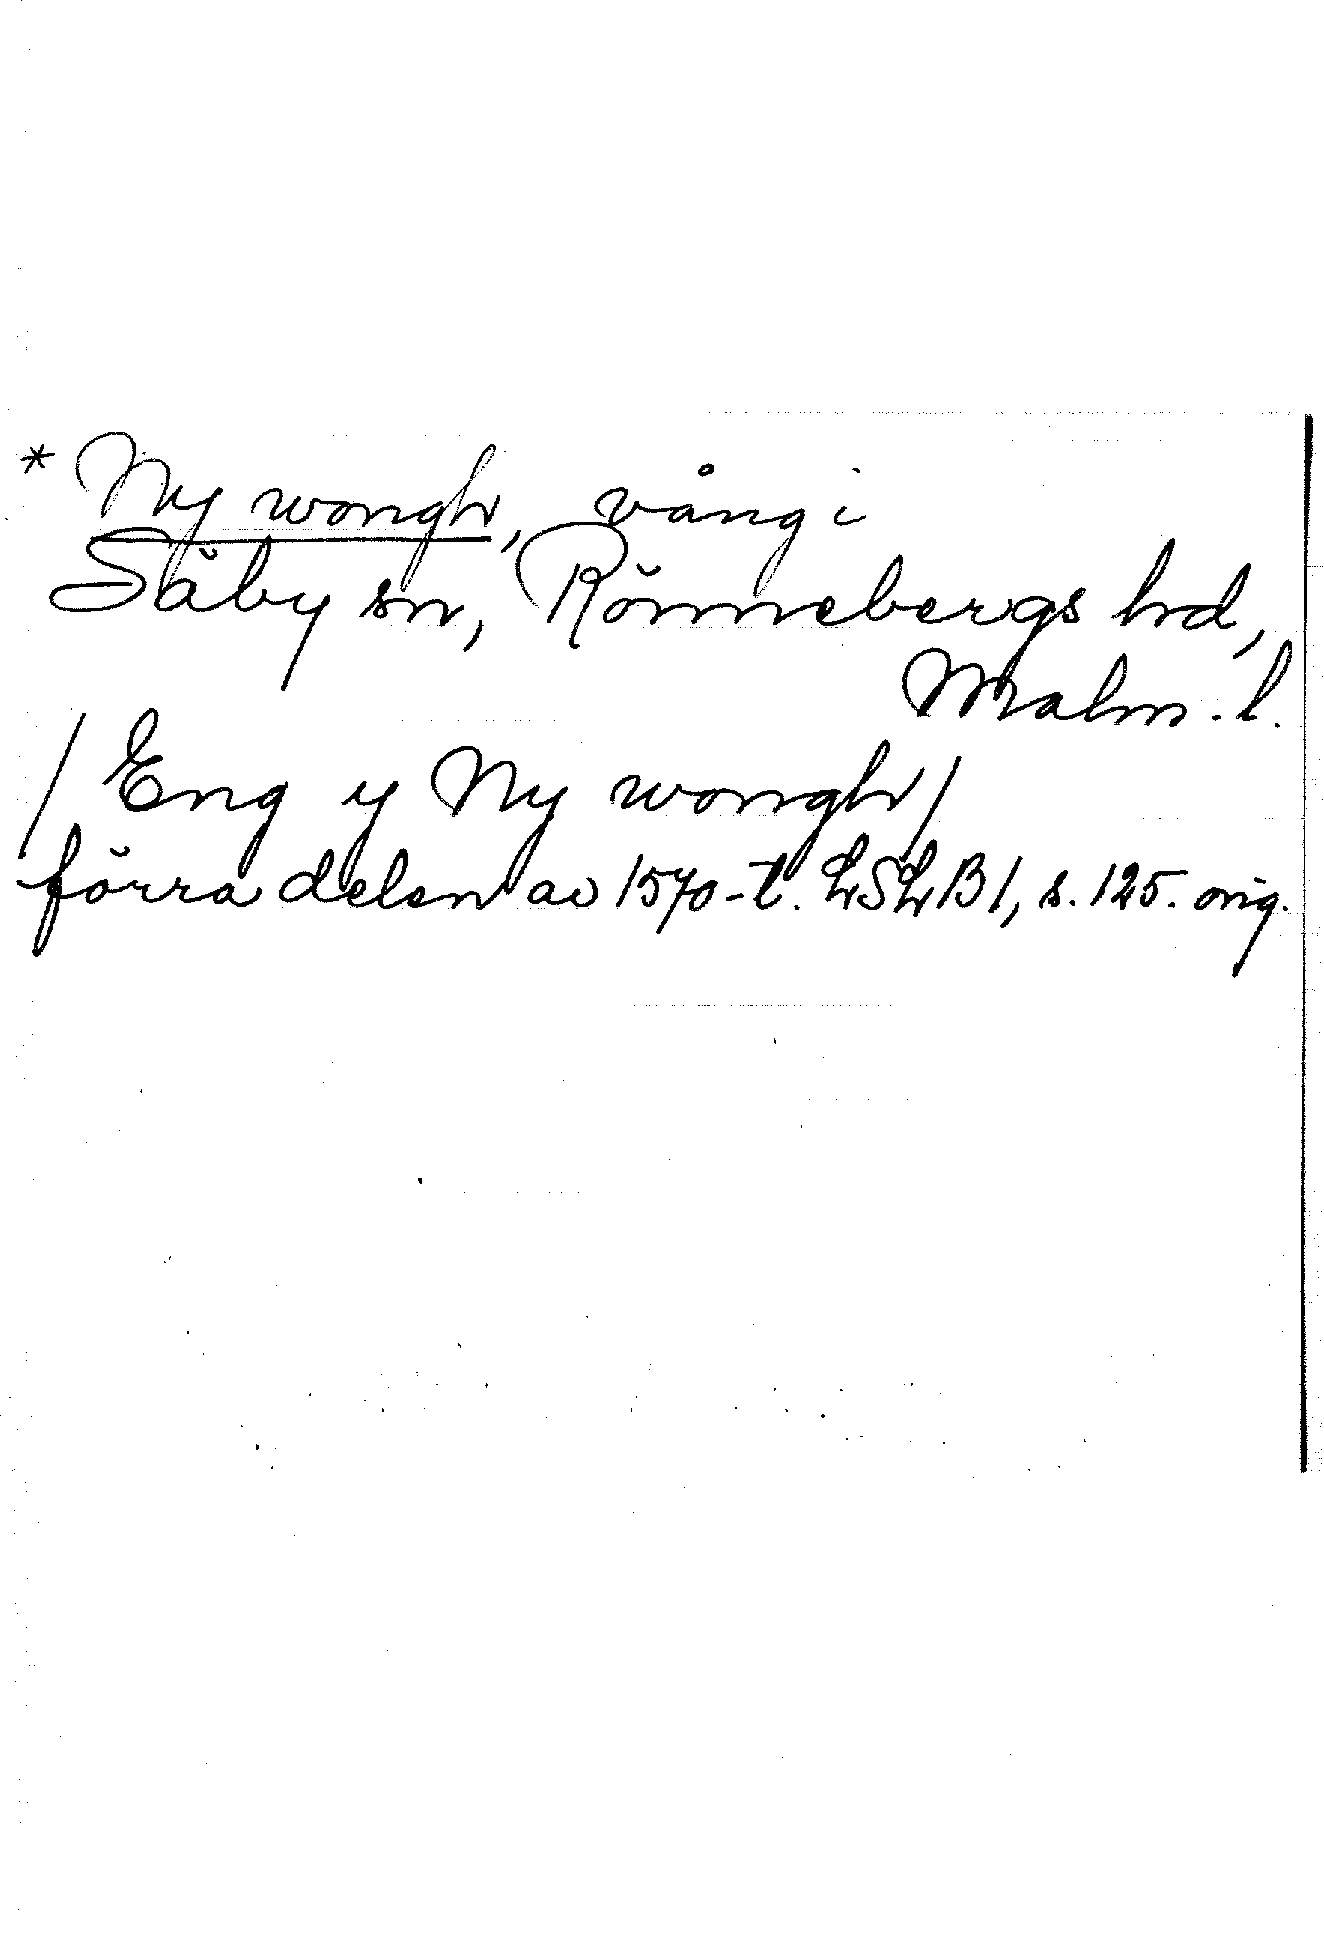 * Ny wongh, vång i
Säby sn, Rönnebergs hd,
Malm. l.
/Eng y Ny wongh/
förra delen av 1570-t. LSLB 1, s. 125. orig.